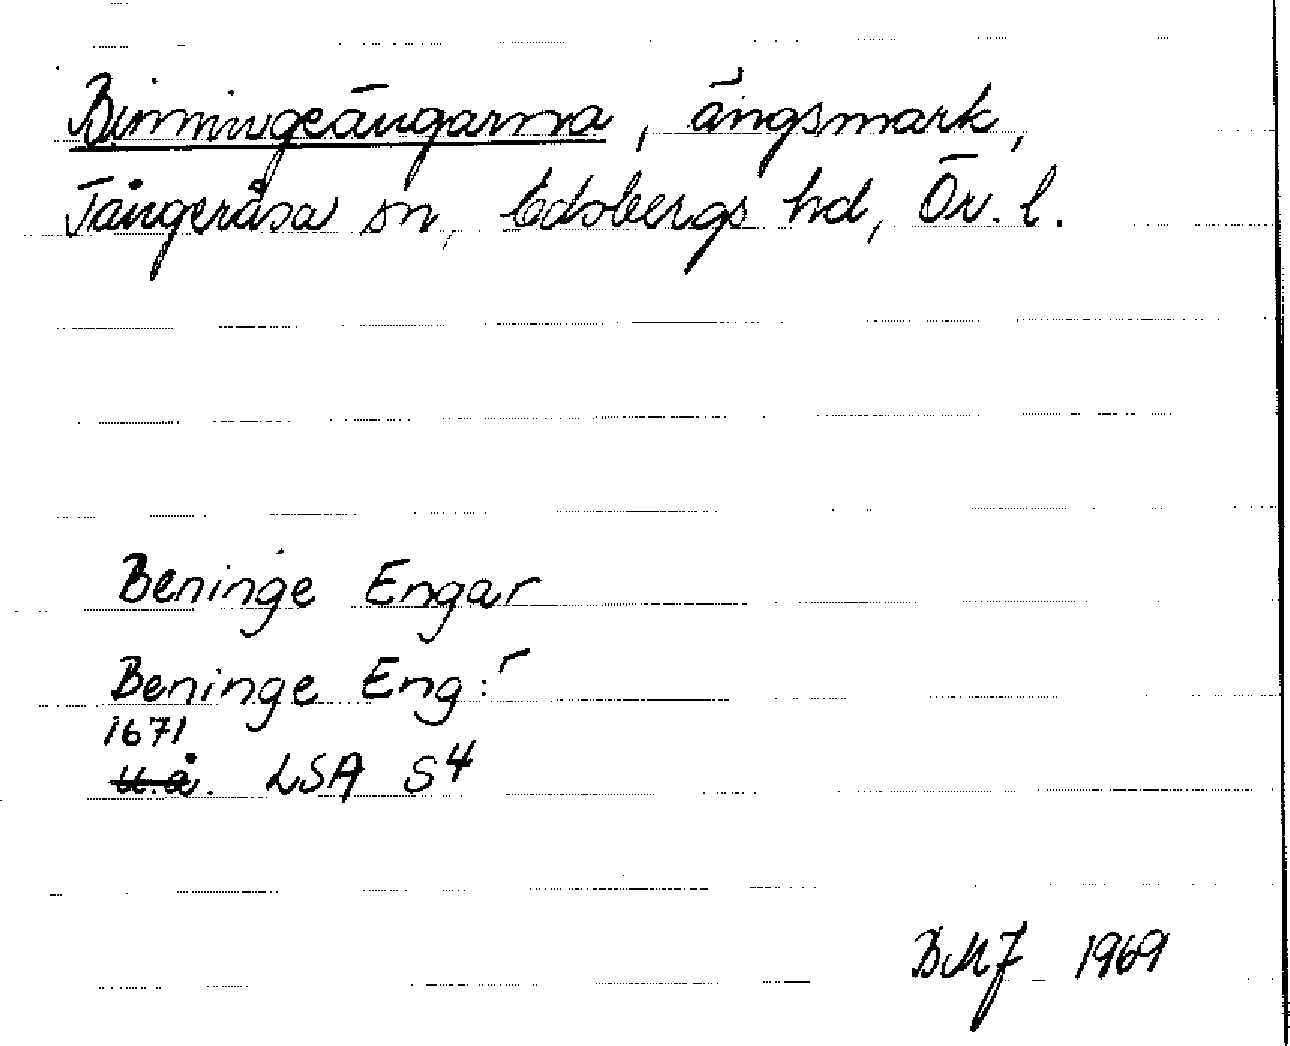 Binningeängarna, ängsmark,
Tångeråsa sn, Edsbergs hd, Ör. l.
Beninge Engar
Beninge Eng:r
1671
u.å. LSA S4
BMJ 1969